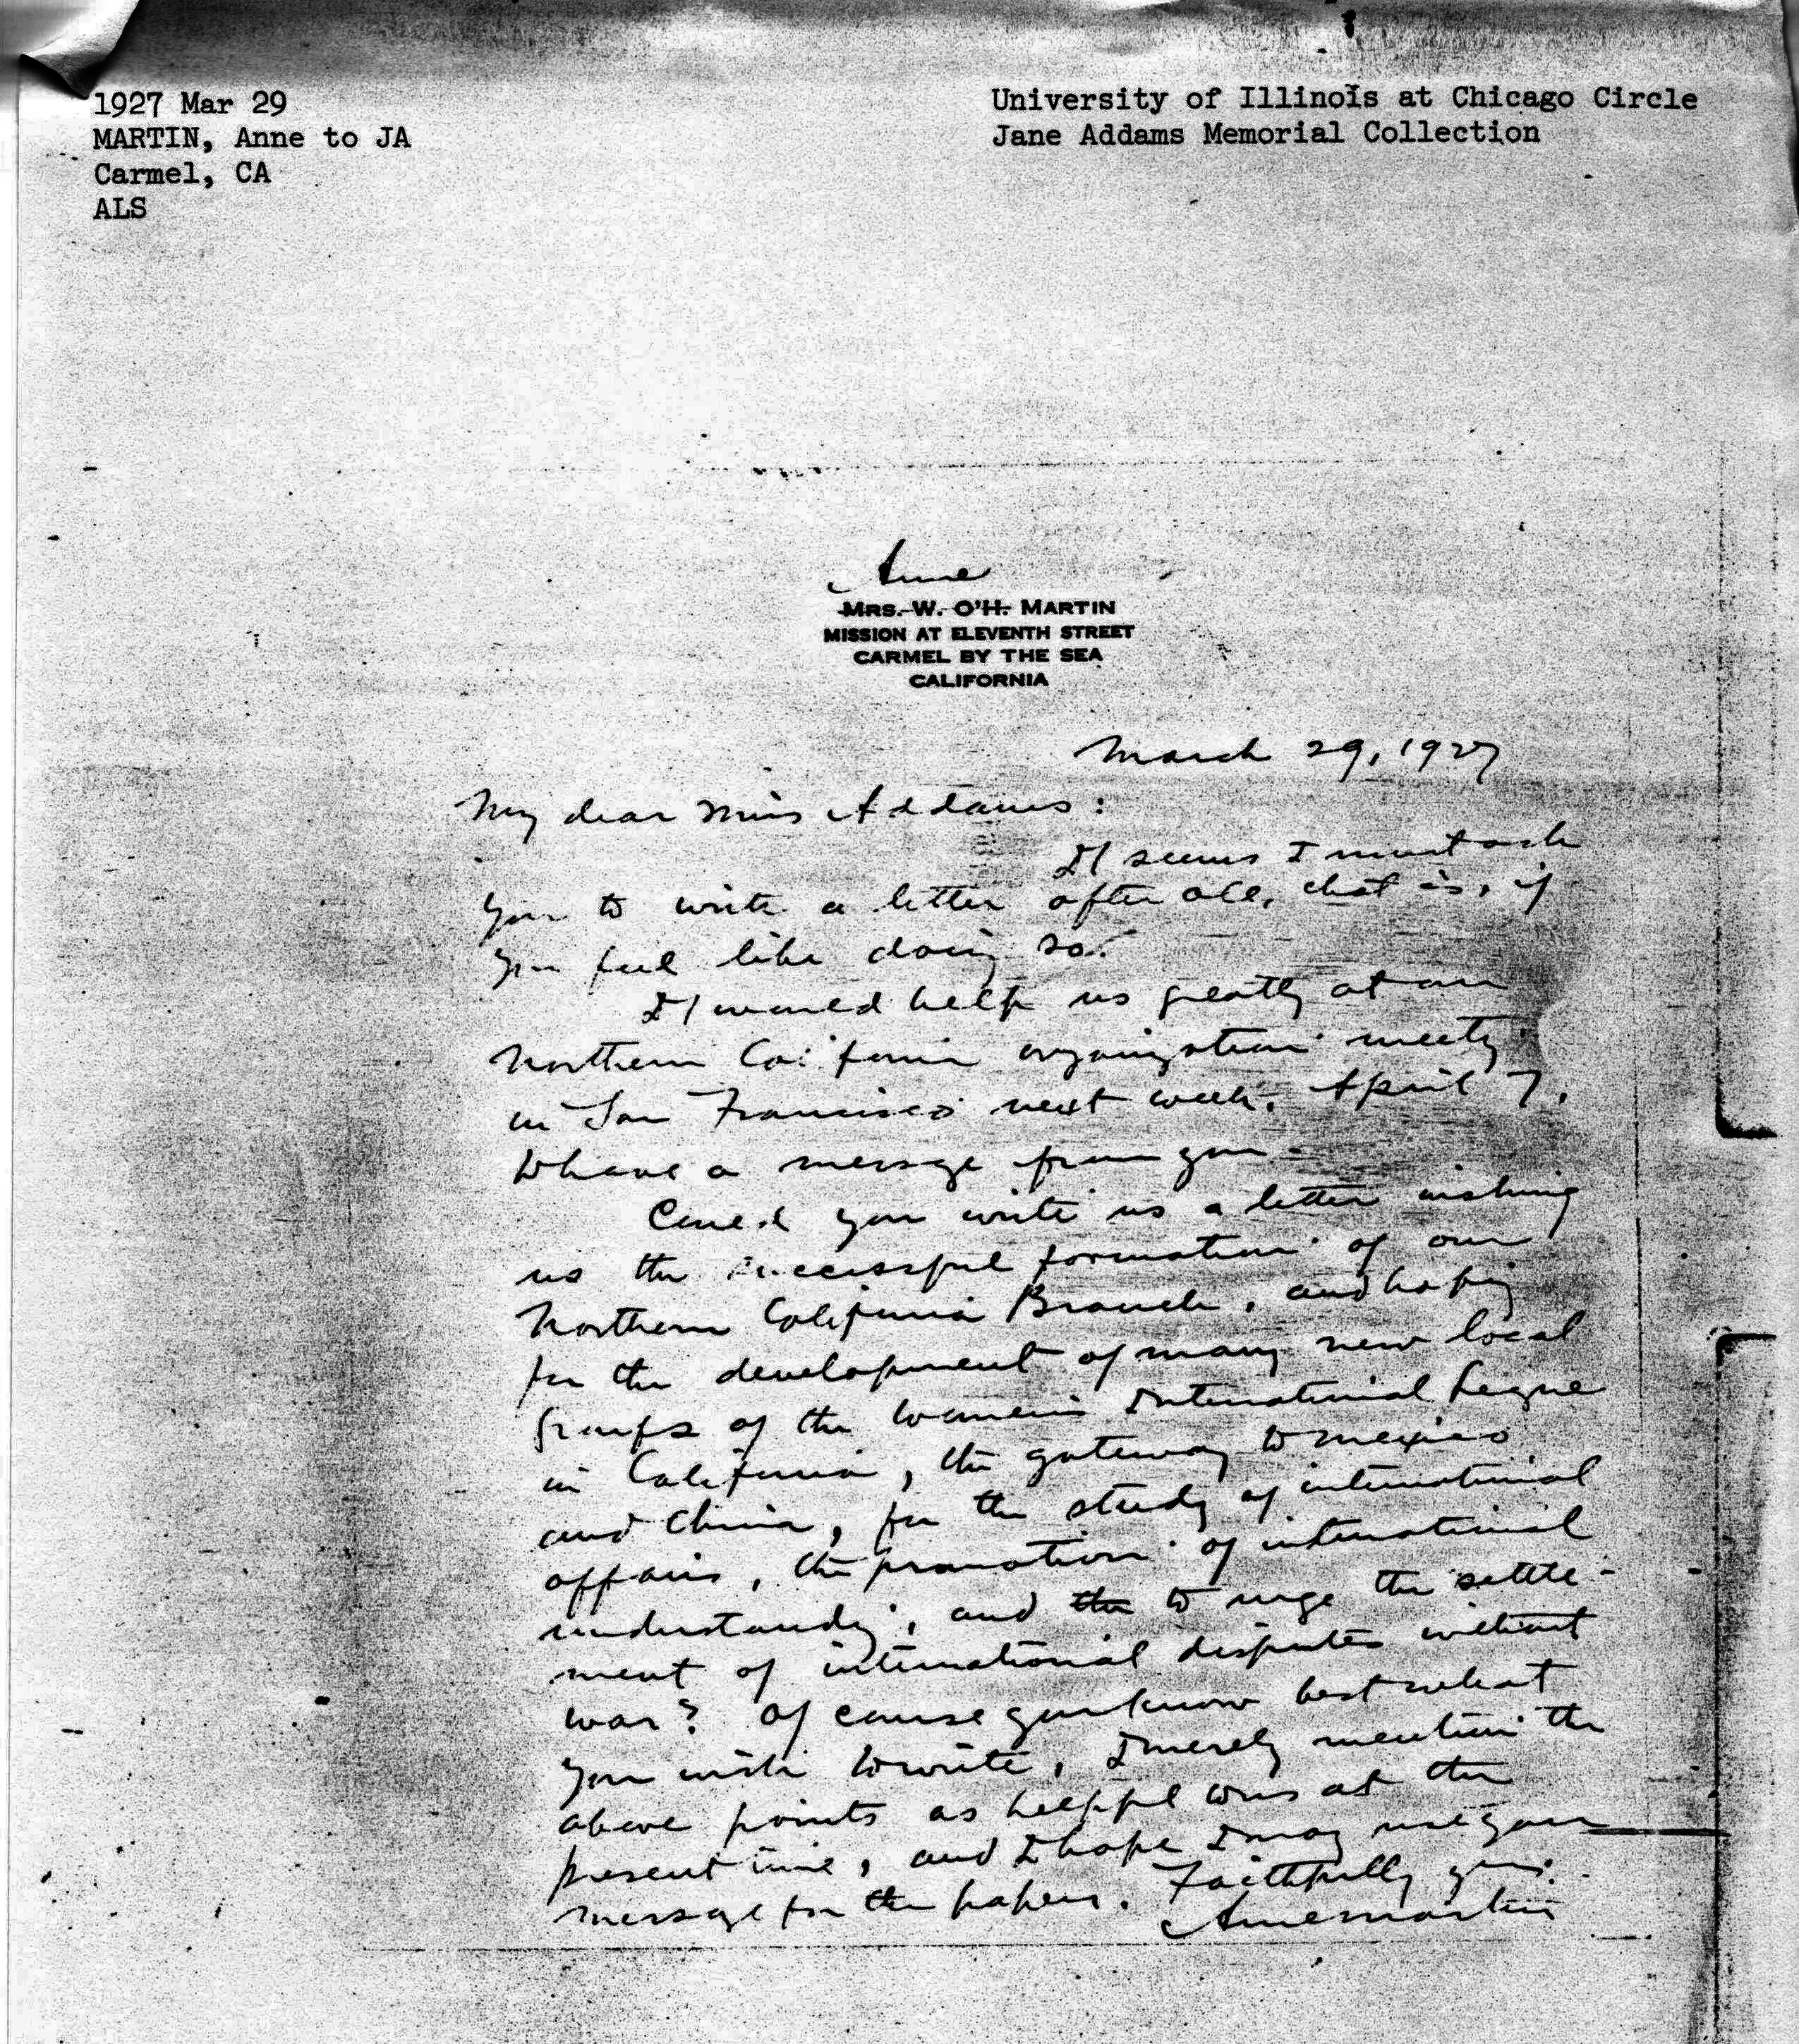 1927 Mar 29
MARTIN, Anne to JA
Carmel, CA
ALS
University of Illinois at Chicago Circle
Jane Addams Memorial Collection
Anne
MRS. W. O'H. MARTIN
MISSION AT ELEVENTH STREET
CARMEL BY THE SEA
CALIFORNIA
March 29, 1927
My dear Miss Addams:
It seems I must ask
you to write a letter after all, that is, if
you feel like doing so.
It would help us greatly at our
Northern California organization meeting
in San Francisco next week, April 7,
to have a message from you.
Could you write us a letter wishing
us the successful formation of our
Northern California Branch, and hoping
for the development of many new local
groups of the Women's International League
in California, the gateway to Mexico
and China, for the study of international
affairs, the promotion of international
understanding, and the to urge the settle-
ment of international disputes without
war? Of course you know best what
you wish to write, I merely mention the
above points as helpful to us at the
present time, and I hope I may use your
message for the papers. Faithfully yours.
Anne Martin